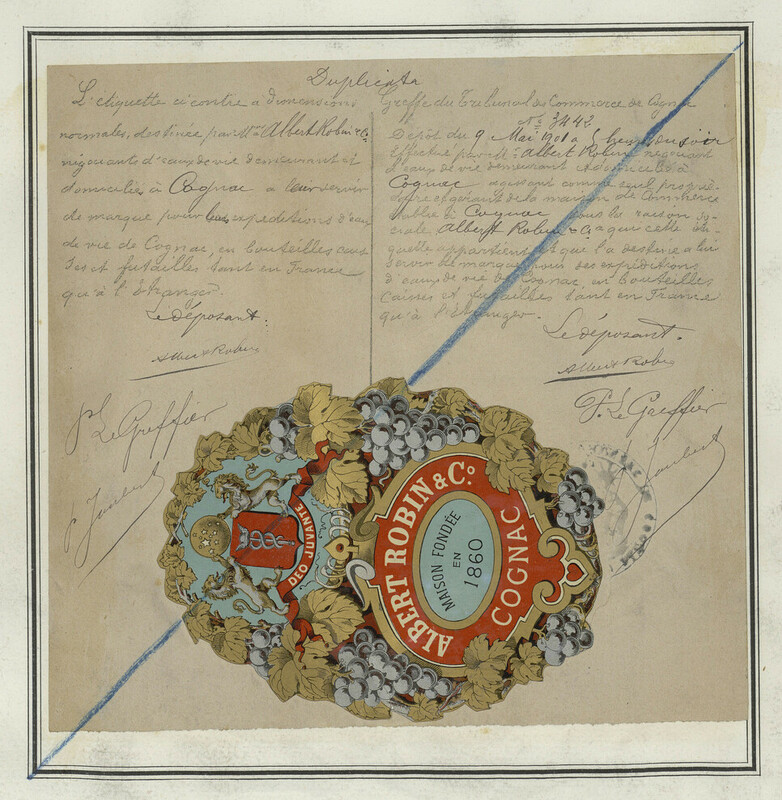 Duplicata
L'étiquette ci contre a dimensions
normales, destinée par Mrs Albert Robin & Co
négociants d'eaux de vie demeurant et
domiciliés à Cognac à leur servir
de marque pour les expéditions d'eau
de vie de Cognac, en bouteilles cais
ses et futailles tant en France
qu'à l'Etranger.
Le déposant.
Albert Robin
Le Greffier
Joubert
Greffe du Tribunal de Commerce de Cognac
No 3442
Dépôt du 9 Mai 1901 à heure du soir
Effectué par Mr Albert Robin négociant
d'eaux de vie demeurant et domicilié à
Cognac agissant comme seul proprié-
taire et gérant de la maison de Commerce
établie à Cognac sous la raison so-
ciale, Albert Robin & Co à qui cette éti-
quette appartient et que l'a destinée à lui
servir de marque pour des expéditions
d'eaux de vie de Cognac, en bouteilles
caisses et futailles tant en France
qu'à l'Etranger.
Le déposant.
Albert Robin
P. Le Greffier
Joubert
DEO JUVANTE
ALBERT ROBIN & Co.
MAISON FONDÉE
EN
1860
COGNAC